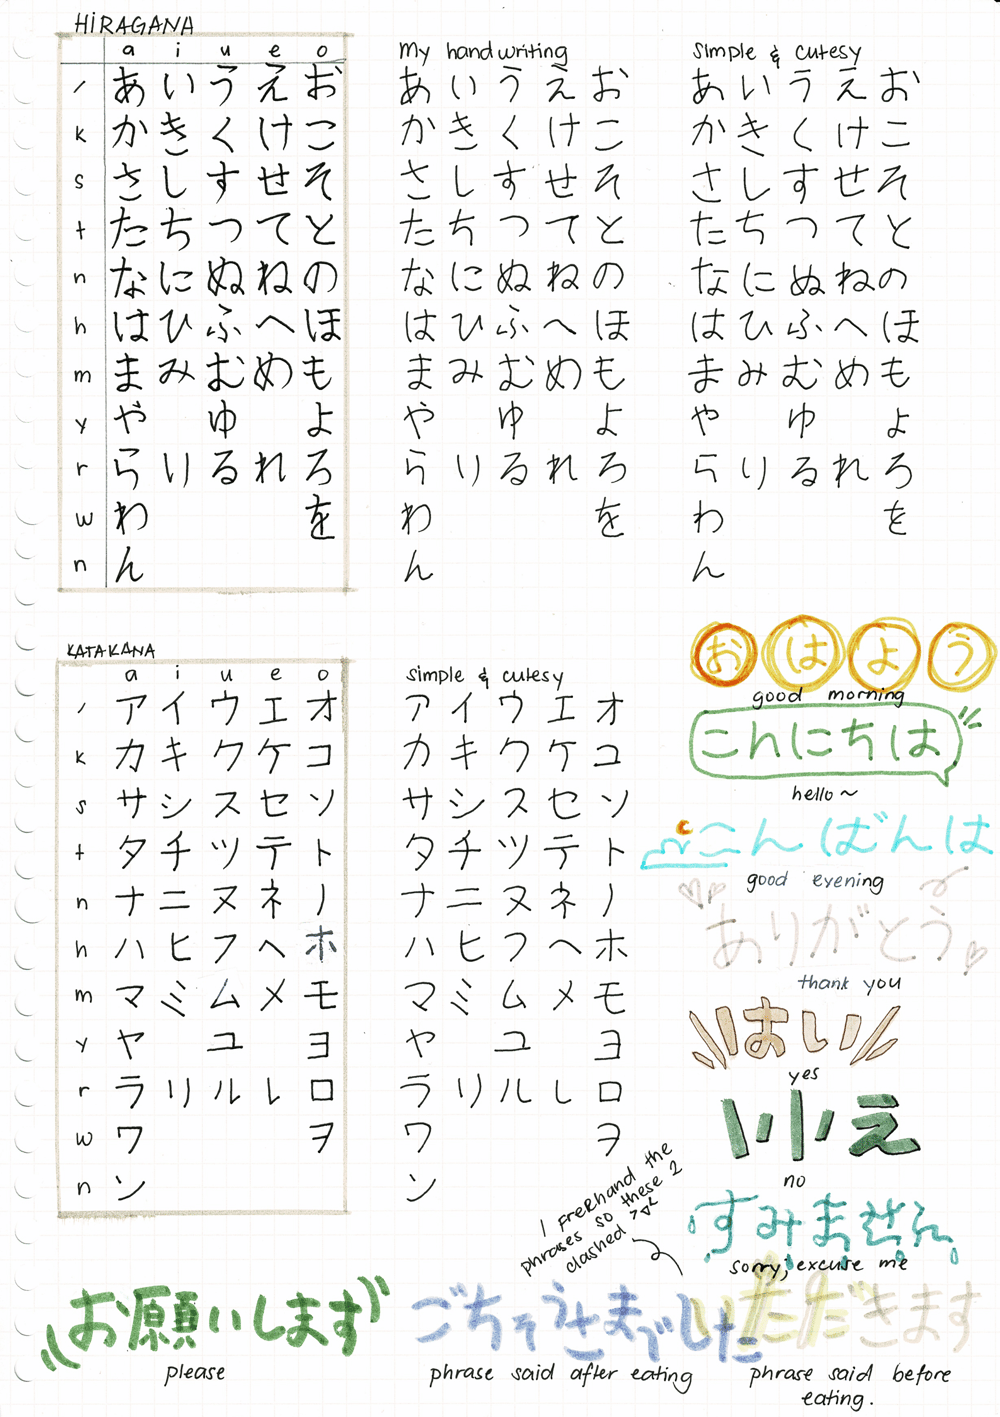 HIRAGANA
a i u e o
/ あ い う え お
k か き く け こ
s さ し す せ そ
t た ち つ て と
n な に ぬ ね の
h は ひ ふ へ ほ
m ま み む め も
y や ゆ よ
r ら り る れ ろ
w わ を
n ん
My handwriting
あ い う え お
か き く け こ
さ し す せ そ
た ち つ て と
な に ぬ ね の
は ひ ふ へ ほ
ま み む め も
や ゆ よ
ら り る れ ろ
わ を
ん
simple & cutesy
あ い う え お
か き く け こ
さ し す せ そ
た ち つ て と
な に ぬ ね の
は ひ ふ へ ほ
ま み む め も
や ゆ よ
ら り る れ ろ
わ を
ん
KATAKANA
a i u e o
/ ア イ ウ エ オ
k カ キ ク ケ コ
s サ シ ス セ ソ
t タ チ ツ テ ト
n ナ ニ ヌ ネ ノ
h ハ ヒ フ ヘ ホ
m マ ミ ム メ モ
y ヤ ユ ヨ
r ラ リ ル レ ロ
w ワ ヲ
n ン
simple & cutesy
ア イ ウ エ オ
カ キ ク ケ コ
サ シ ス セ ソ
タ チ ツ テ ト
ナ ニ ヌ ネ ノ
ハ ヒ フ ヘ ホ
マ ミ ム メ モ
ヤ ユ ヨ
ラ リ ル レ ロ
ワ ヲ
ン
おはよう
good morning
こんにちは
hello ~
こんばんは
good evening
ありがとう
thank you
はい
yes
いいえ
no
すみません
sorry; excuse me
I FREEHAND the
phrases so these 2
clashed >~<
お願いします
please
ごちそうさまでした
phrase said after eating
いただきます
phrase said before
eating.